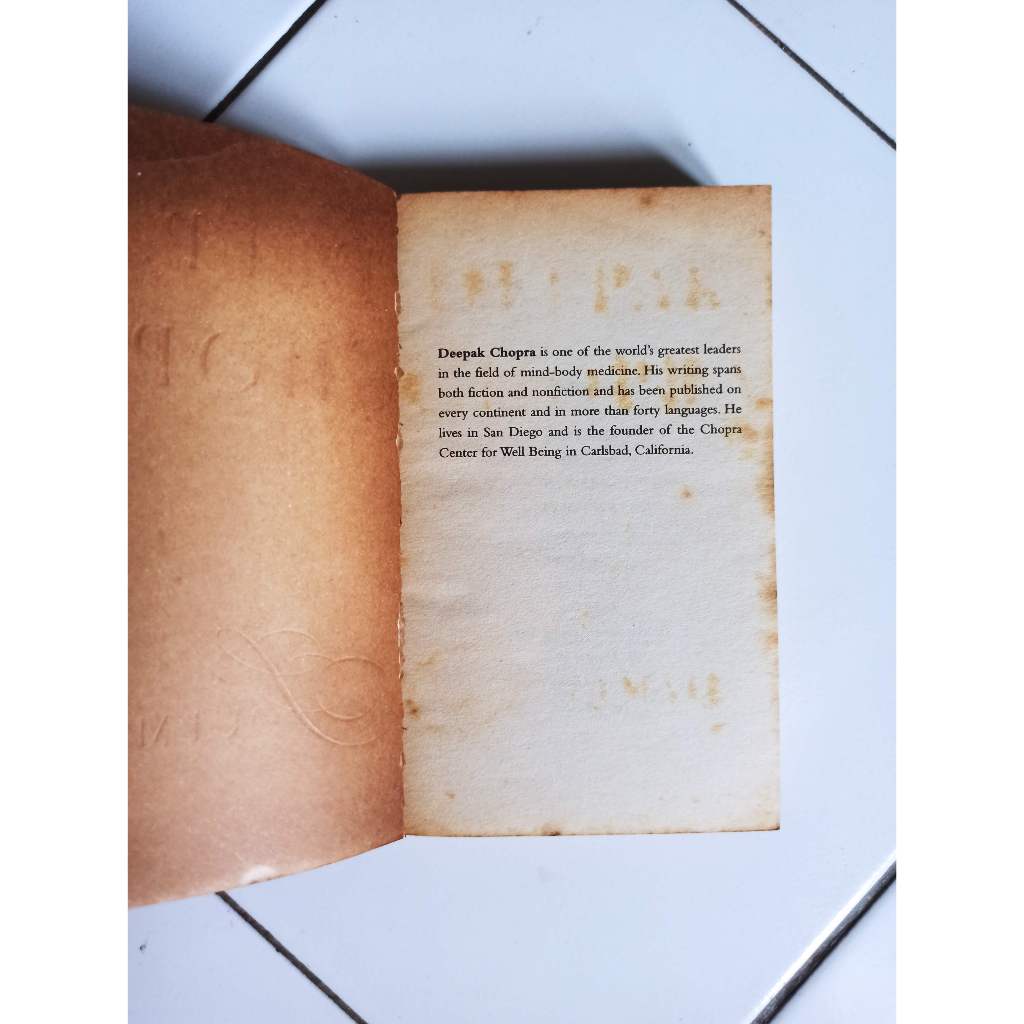 Deepak Chopra is one of the world's greatest leaders
in the field of mind-body medicine. His writing spans
both fiction and nonfiction and has been published on
every continent and in more than forty languages. He
lives in San Diego and is the founder of the Chopra
Center for Well Being in Carlsbad, California.